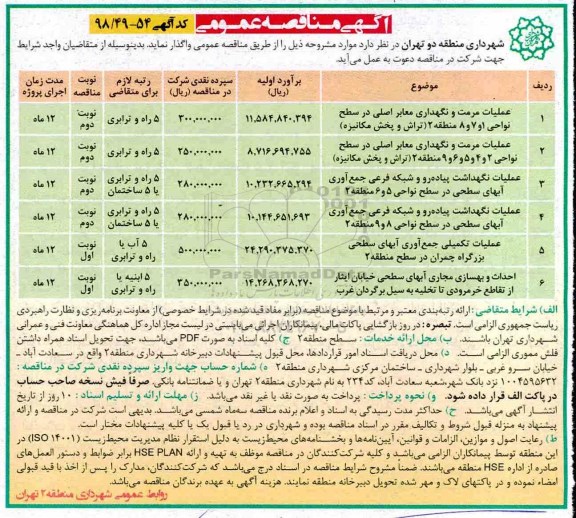 آگهی مناقصه عمومی
کد آگهی ۵۴-۹۸/۴۹
شهرداری منطقه دو تهران در نظر دارد موارد مشروحه ذیل را از طریق مناقصه عمومی واگذار نماید. بدینوسیله از متقاضیان واجد شرایط
جهت شرکت در مناقصه دعوت به عمل می‌آید.
ردیف موضوع برآورد اولیه (ریال) سپرده نقدی شرکت در مناقصه (ریال) رتبه لازم برای متقاضی نوبت مناقصه مدت زمان اجرای پروژه
۱ عملیات مرمت و نگهداری معابر اصلی در سطح نواحی ۱و۷و۸ منطقه۲(تراش و پخش مکانیزه) ۱۱,۵۸۴,۸۴۰,۳۹۴ ۳۰۰,۰۰۰,۰۰۰ ۵ راه و ترابری نوبت دوم ۱۲ ماه
۲ عملیات مرمت و نگهداری معابر اصلی در سطح نواحی ۲و۴و۵و۶و۹منطقه۲(تراش و پخش مکانیزه) ۸,۷۱۶,۶۹۴,۷۵۵ ۲۵۰,۰۰۰,۰۰۰ ۵ راه و ترابری نوبت دوم ۱۲ ماه
۳ عملیات نگهداشت پیاده‌رو و شبکه فرعی جمع‌آوری آبهای سطحی در سطح نواحی ۵و۶منطقه۲ ۱۰,۲۳۲,۶۶۵,۲۹۴ ۲۸۰,۰۰۰,۰۰۰ ۵ راه و ترابری یا ۵ ساختمان نوبت دوم ۱۲ ماه
۴ عملیات نگهداشت پیاده‌رو و شبکه فرعی جمع‌آوری آبهای سطحی در سطح نواحی ۸و۹منطقه۲ ۱۰,۱۴۴,۶۵۱,۶۹۳ ۲۸۰,۰۰۰,۰۰۰ ۵ راه و ترابری یا ۵ ساختمان نوبت دوم ۱۲ ماه
۵ عملیات تکمیلی جمع‌آوری آبهای سطحی بزرگراه چمران در سطح منطقه۲ ۲۴,۲۹۰,۳۷۵,۳۷۰ ۵۰۰,۰۰۰,۰۰۰ ۵ آب یا راه و ترابری نوبت اول ۱۲ ماه
۶ احداث و بهسازی مجاری آبهای سطحی خیابان ایثار از تقاطع خرمرودی تا تخلیه به سیل برگردان غرب ۱۴,۲۶۸,۲۶۸,۲۷۰ ۳۵۰,۰۰۰,۰۰۰ ۵ ابنیه یا راه و ترابری نوبت اول ۱۲ ماه
الف) شرایط متقاضی : ارائه رتبه‌بندی معتبر و مرتبط با موضوع مناقصه (برابر مفاد قید شده در شرایط خصوصی) از معاونت برنامه‌ریزی و نظارت راهبردی
ریاست جمهوری الزامی است. تبصره: در روز بازگشایی پاکات مالی، پیمانکاران اجرائی می‌بایستی در لیست مجاز اداره کل هماهنگی معاونت فنی و عمرانی
شهرداری تهران باشند. ب) محل ارائه خدمات : سطح منطقه۲ ج) کلیه اسناد به صورت PDF می‌باشد، جهت تحویل اسناد همراه داشتن
فلش مموری الزامی است. د) محل دریافت اسناد امور قراردادها، محل قبول پیشنهادات دبیرخانه شهرداری منطقه۲ واقع در سعادت آباد ـ
خیابان سرو غربی ـ بلوار شهرداری ـ ساختمان مرکزی شهرداری منطقه۲ ه) شماره حساب جهت واریز سپرده نقدی شرکت در مناقصه :
۱۰۰۴۵۹۵۶۳۲ نزد بانک شهر شعبه سعادت آباد، کد۲۲۴ به نام شهرداری منطقه۲ تهران و یا ضمانتنامه بانکی. صرفاً فیش نسخه صاحب حساب
در پاکت الف قرار داده شود. و) نحوه پرداخت : پرداخت به صورت نقد یا غیر نقد می‌باشد. ز) مهلت ارائه و تسلیم اسناد : ۱۰ روز از تاریخ
انتشار آگهی می‌باشد. ح) حداکثر مدت رسیدگی به اسناد و اعلام برنده مناقصه سه‌ماه شمسی می‌باشد. بدیهی است شرکت در مناقصه و ارائه
پیشنهاد به منزله قبول شروط و تکالیف مقرر در اسناد مناقصه بوده و شهرداری در رد یا قبول یک یا کلیه پیشنهادات مختار است.
ط) رعایت اصول و موازین، الزامات و قوانین، آیین‌نامه‌ها و بخشنامه‌های محیط‌زیست به دلیل استقرار نظام مدیریت محیط‌زیست (ISO ۱۴۰۰۱) در
این منطقه توسط پیمانکاران الزامی می‌باشد و کلیه شرکت‌کنندگان در مناقصه موظف به تهیه و ارائه HSE PLAN برابر ضوابط و دستور العمل‌های
صادره از اداره HSE منطقه می‌باشند. ضمناً مشروح شرایط مناقصه در اسناد درج می‌باشد که شرکت‌کنندگان، مدارک را پس از اخذ با قید قبولی
امضاء نموده و در پاکتهای لاک و مهر شده تحویل دبیرخانه منطقه نمایند. هزینه آگهی به عهده برندگان مناقصه می‌باشد.
روابط عمومی شهرداری منطقه۲ تهران